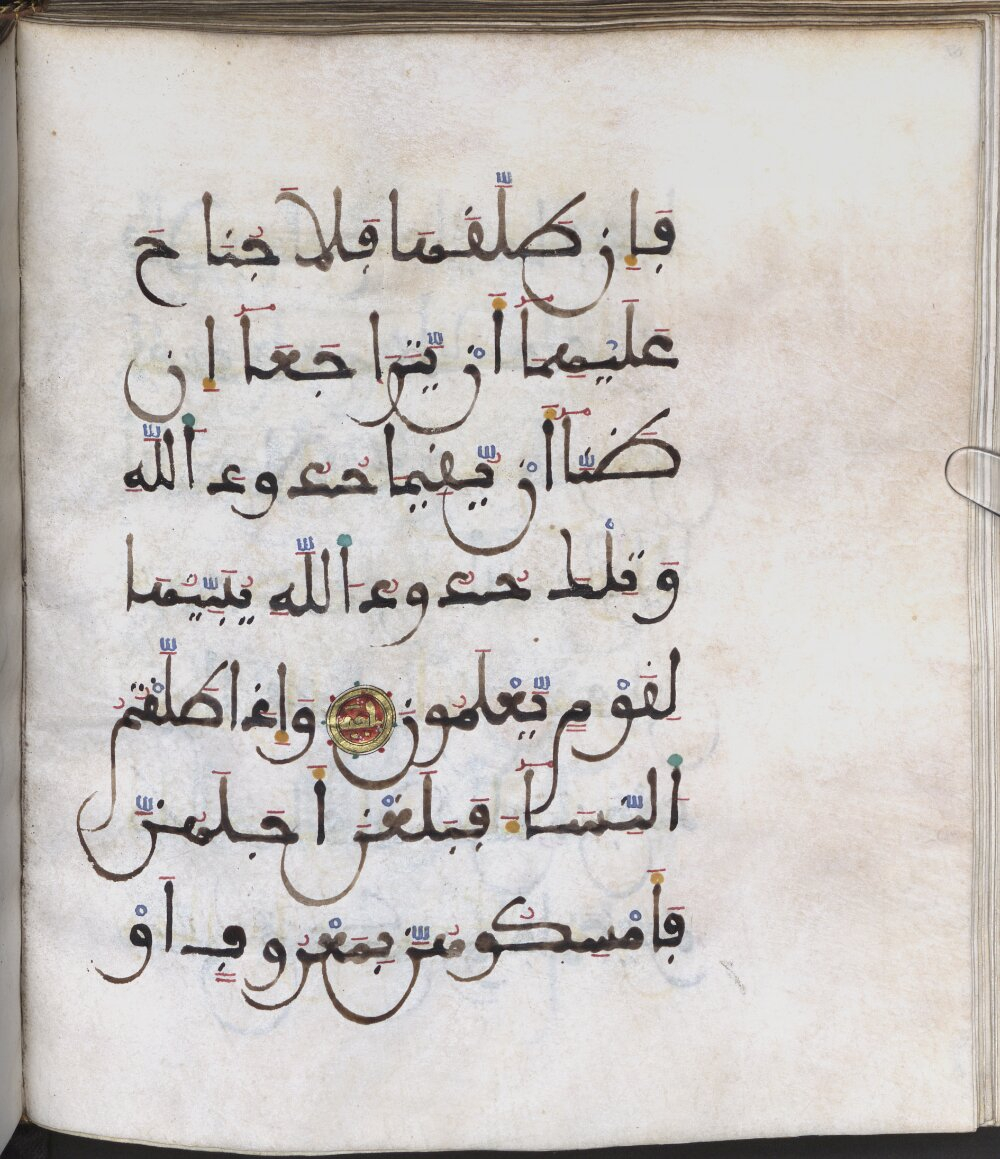 فَإِن طَلَّقَهَا فَلَا جُنَاحَ
عَلَيْهِمَآ أَنْ يَّتَرَاجَعَآ إِن
ظَنَّآ أَنْ يُّقِيمَا حُدُودَ اَللَّهِ
وَتِلْكَ حُدُودُ اُللَّهِ يُبَيِّنُهَا
لِقَوْمٍ يَعْلَمُونَ وَإِذَا طَلَّقْتُمُ
اُلنِّسَآءَ فَبَلَغْنَ أَجَلَهُنَّ
فَأَمْسِكُوهُنَّ بِمَعْرُوفٍ أَوْ